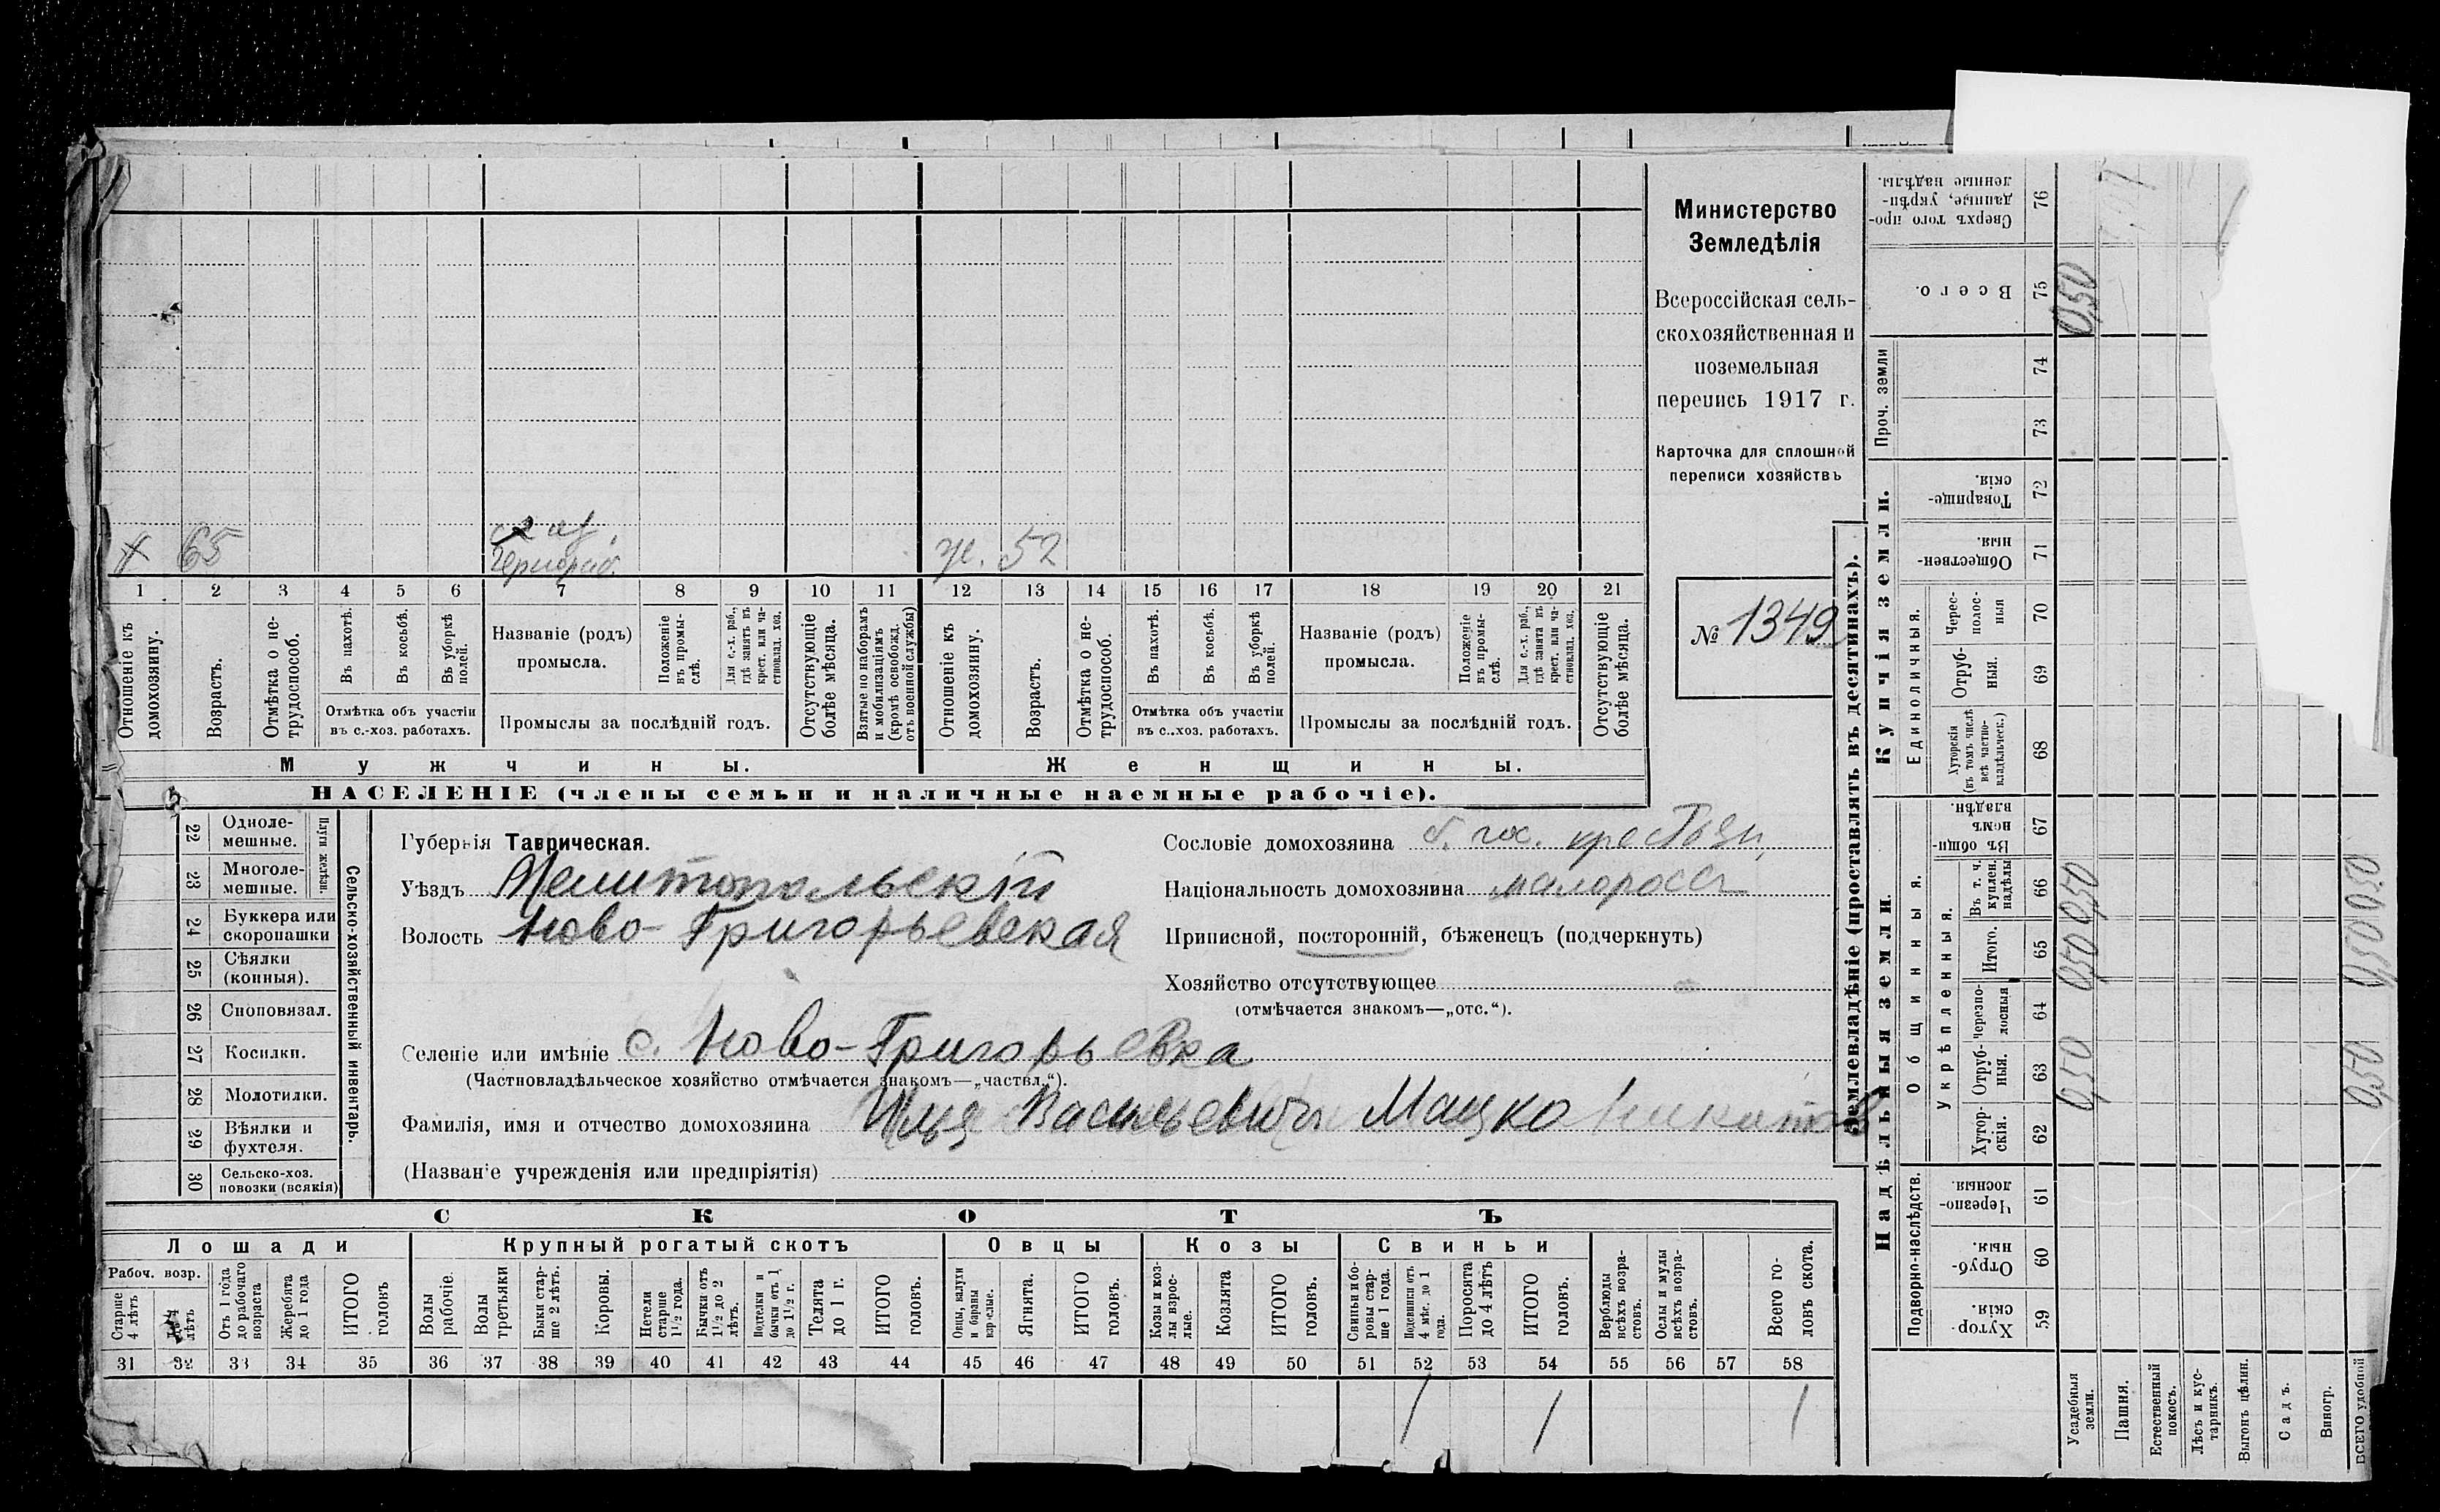 Министерство
Земледѣлія
Всероссійская сель-
скохозяйственная и
поземельная
перепись 1917 г.
Карточка для сплошной
переписи хозяйствъ
№ 1349
х 65
чернораб.
ж. 52
1 2 3 4 5 6 7 8 9 10 11 12 13 14 15 16 17 18 19 20 21
Отношеніе къ домохозяину.
Возрастъ.
Отмѣтка о не-трудоспособ.
Въ пахотѣ.
Въ косьбѣ.
Въ уборкѣ полей.
Отмѣтка объ участіи
въ с.-хоз. работахъ.
Названіе (родъ)
промысла.
Положеніе въ промы-слѣ.
Для с.-х. раб., гдѣ занятъ въ крест. или ча-стновлад. хоз.
Промыслы за послѣдній годъ.
Отсутствующіе болѣе мѣсяца.
Взятые по наборамъ и мобилизаціямъ (кромѣ освобожд. отъ военной службы)
Отношеніе къ домохозяину.
Возрастъ.
Отмѣтка о не-трудоспособ.
Въ пахотѣ.
Въ косьбѣ.
Въ уборкѣ полей.
Отмѣтка объ участіи
въ с..хоз. работахъ.
Названіе (родъ)
промысла.
Положеніе въ промы-слѣ.
Для с.-х. раб., гдѣ занята въ крест. или ча-стновлад. хоз.
Промыслы за послѣдній годъ.
Отсутствующіе болѣе мѣсяца.
Мужчины.
Женщины.
НАСЕЛЕНІЕ (члены семьи и наличные наемные рабочіе).
22 Одноле-мешные.
23 Многоле-мешные.
24 Буккера или скоропашки
25 Сѣялки (конныя).
26 Сноповязал.
27 Косилки.
28 Молотилки.
29 Вѣялки и фухтеля.
30 Сельско-хоз. повозки (всякія)
Сельско-хозяйственный инвентарь.
Губернія Таврическая.
Уѣздъ Мелитопольскій
Волость Ново-Григорьевская
Селеніе или имѣніе с. Ново-Григорьевка
(Частновладѣльческое хозяйство отмѣчается знакомъ—„частвл.“).
Фамилія, имя и отчество домохозяина Илья Васильевичъ Мацко
(Названіе учрежденія или предпріятія)
Сословіе домохозяина б. гос. крестьян.
Національность домохозяина малороссъ
Приписной, посторонній, бѣженецъ (подчеркнуть)
Хозяйство отсутствующее
(отмѣчается знакомъ—„отс.“).
СКОТЪ
Лошади
Крупный рогатый скотъ
Овцы
Козы
Свиньи
Рабоч. возр.
Старше 4 лѣтъ
лѣтъ
Отъ 1 года до рабочаго возраста
Жеребята до 1 года
ИТОГО головъ
Волы рабочіе.
Волы третьяки
Быки стар-ше 2 лѣтъ.
Коровы.
Нетели старше 1½ года.
Бычки отъ 1½ до 2 лѣтъ.
Подтелки и бычки отъ 1 до 1½ г.
Телята до 1 г.
ИТОГО головъ.
Овцы, валухи и бараны взрослые.
Ягнята.
ИТОГО головъ.
Козы и коз-лы взрос-лые.
Козлята
ИТОГО головъ.
Свиньи и бо-ровы стар-ше 1 года.
Подсвинки отъ 4 мѣс. до 1 года.
Поросята до 4 лѣтъ
ИТОГО головъ.
Верблюды всѣхъ возра-стовъ.
Ослы и мулы всѣхъ возра-стовъ.
Всего го-ловъ скота.
31 32 33 34 35 36 37 38 39 40 41 42 43 44 45 46 47 48 49 50 51 52 53 54 55 56 57 58
1 1 1
Землевладѣніе (проставлять въ десятинахъ).
Надѣльныя земли.
Купчія земли.
Проч. земли
Подворно-наслѣдств.
Общинныя.
Укрѣпленныя.
Единоличныя.
Хутор-скія. 59
Отруб-ныя. 60
Черезпо-лосныя. 61
Хутор-скія. 62
Отруб-ныя. 63
Черезпо-лосныя 64
Итого. 65
Въ т. ч. куплен. надѣлы 66
Въ общин-номъ владѣн. 67
Хуторскія (въ томъ числѣ всѣ частно-владѣльческ.) 68
Отруб-ныя. 69
Черес-полос-ныя 70
Обществен-ныя. 71
Товарище-скія. 72
73
74
Всего. 75
Сверхъ того про-данные, укрѣп-ленные надѣлы. 76
Усадебныя земли.
0,50 0,50 0,50 0,50
Пашня.
Естественный покосъ.
Лѣсъ и кус-тарникъ.
Выгонъ цѣлин.
Садъ.
Виногр.
ВСЕГО удобной
0,50 0,50 0,50